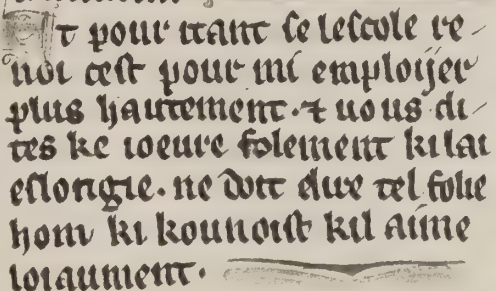 Et pour itant se lescole re-
noi cest pour mi emploijer
plus hautement. ⁊ uous di-
tes ke ioeure folement ki lai
eslongie. ne doit dire tel folie
hom ki kounoist kil aime
loiaument.